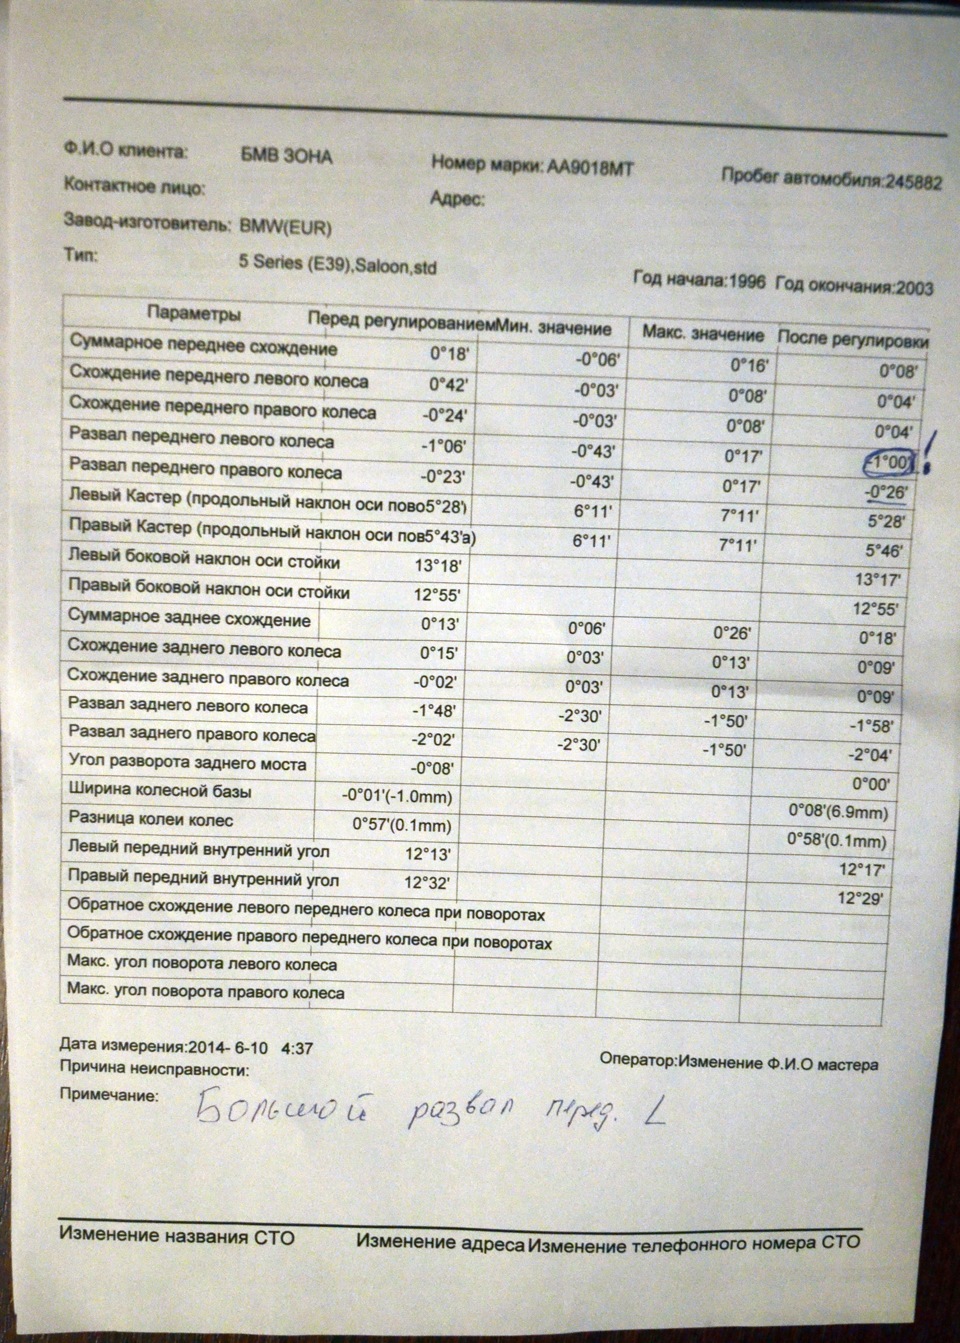 Ф.И.О клиента: БМВ ЗОНА Номер марки: AA9018MT Пробег автомобиля:245882
Контактное лицо: Адрес:
Завод-изготовитель: BMW(EUR)
Тип: 5 Series (E39),Saloon,std Год начала:1996 Год окончания:2003
Параметры Перед регулированием Мин. значение Макс. значение После регулировки
Суммарное переднее схождение 0°18' -0°06' 0°16' 0°08'
Схождение переднего левого колеса 0°42' -0°03' 0°08' 0°04'
Схождение переднего правого колеса -0°24' -0°03' 0°08' 0°04'
Развал переднего левого колеса -1°06' -0°43' 0°17' -1°00' !
Развал переднего правого колеса -0°23' -0°43' 0°17' -0°26'
Левый Кастер (продольный наклон оси пово5°28') 6°11' 7°11' 5°28'
Правый Кастер (продольный наклон оси пов5°43'а) 6°11' 7°11' 5°46'
Левый боковой наклон оси стойки 13°18' 13°17'
Правый боковой наклон оси стойки 12°55' 12°55'
Суммарное заднее схождение 0°13' 0°06' 0°26' 0°18'
Схождение заднего левого колеса 0°15' 0°03' 0°13' 0°09'
Схождение заднего правого колеса -0°02' 0°03' 0°13' 0°09'
Развал заднего левого колеса -1°48' -2°30' -1°50' -1°58'
Развал заднего правого колеса -2°02' -2°30' -1°50' -2°04'
Угол разворота заднего моста -0°08' 0°00'
Ширина колесной базы -0°01'(-1.0mm) 0°08'(6.9mm)
Разница колеи колес 0°57'(0.1mm) 0°58'(0.1mm)
Левый передний внутренний угол 12°13' 12°17'
Правый передний внутренний угол 12°32' 12°29'
Обратное схождение левого переднего колеса при поворотах
Обратное схождение правого переднего колеса при поворотах
Макс. угол поворота левого колеса
Макс. угол поворота правого колеса
Дата измерения:2014- 6-10 4:37
Оператор:Изменение Ф.И.О мастера
Причина неисправности:
Примечание: Большой развал перед. L
Изменение названия СТО Изменение адреса Изменение телефонного номера СТО